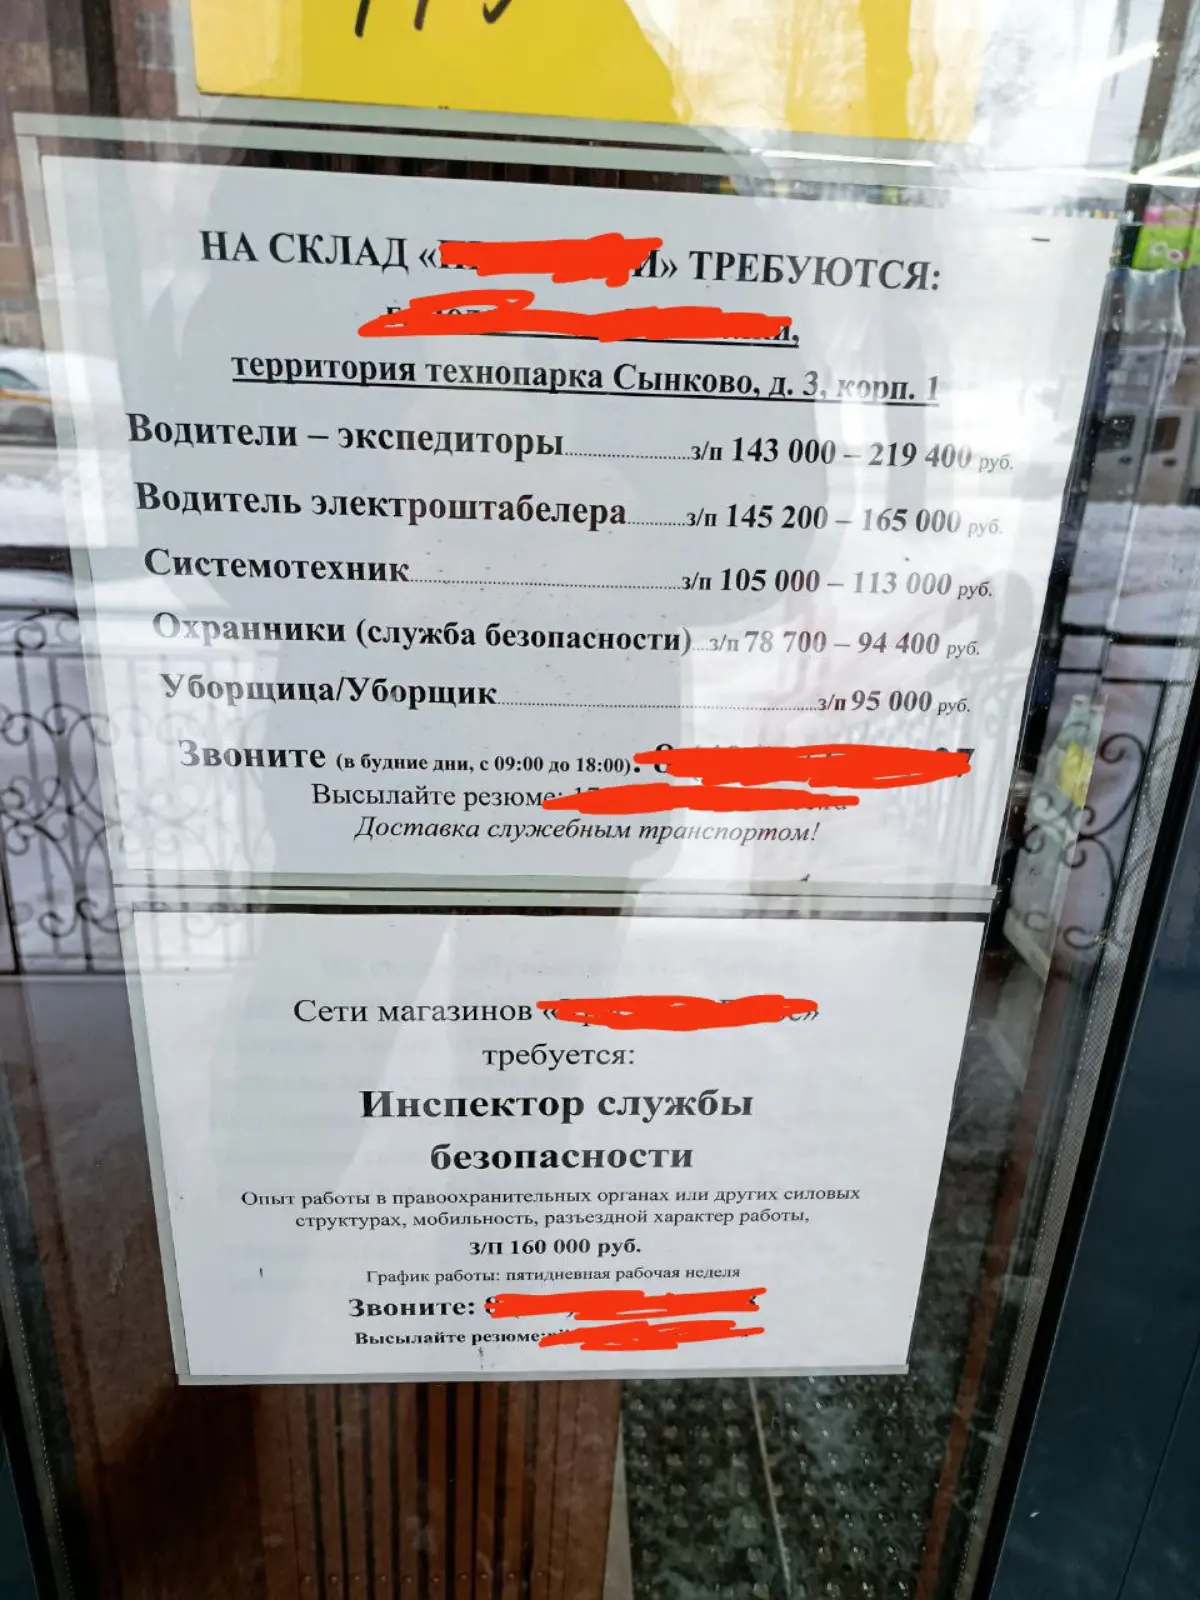 НА СКЛАД « » ТРЕБУЮТСЯ:
территория технопарка Сынково, д. 3, корп. 1
Водители – экспедиторы з/п 143 000 – 219 400 руб.
Водитель электроштабелера з/п 145 200 – 165 000 руб.
Системотехник з/п 105 000 – 113 000 руб.
Охранники (служба безопасности) з/п 78 700 – 94 400 руб.
Уборщица/Уборщик з/п 95 000 руб.
Звоните (в будние дни, с 09:00 до 18:00): 8
Высылайте резюме:
Доставка служебным транспортом!
Сети магазинов « »
требуется:
Инспектор службы
безопасности
Опыт работы в правоохранительных органах или других силовых
структурах, мобильность, разъездной характер работы,
З/П 160 000 руб.
График работы: пятидневная рабочая неделя
Звоните: 8
Высылайте резюме: